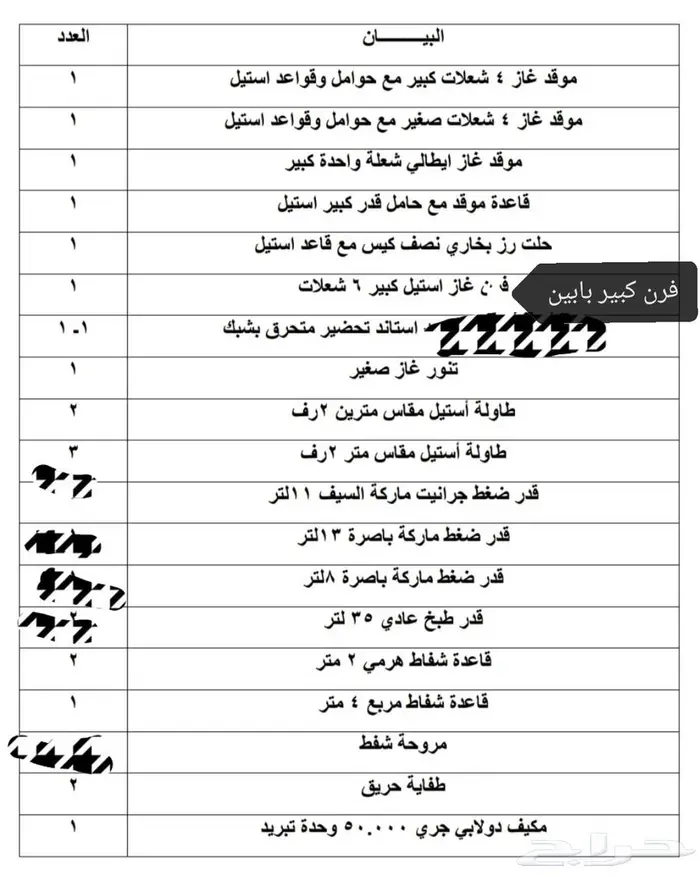 البيـــــــان العدد
موقد غاز ٤ شعلات كبير مع حوامل وقواعد استيل ١
موقد غاز ٤ شعلات صغير مع حوامل وقواعد استيل ١
موقد غاز ايطالي شعلة واحدة كبير ١
قاعدة موقد مع حامل قدر كبير استيل ١
حلت رز بخاري نصف كيس مع قاعد استيل ١
فرن غاز استيل كبير ٦ شعلات ١
فرن كبير بابين
استاند تحضير متحرق بشبك ١ـ١
تنور غاز صغير ١
طاولة أستيل مقاس مترين ٢رف ٢
طاولة أستيل مقاس متر ٢رف ٣
قدر ضغط جرانيت ماركة السيف ١١لتر
قدر ضغط ماركة باصرة ١٣لتر
قدر ضغط ماركة باصرة ٨لتر
قدر طبخ عادي ٣٥ لتر
قاعدة شفاط هرمي ٢ متر ٢
قاعدة شفاط مربع ٤ متر ١
مروحة شفط
طفاية حريق ٢
مكيف دولابي جري ٥٠.٠٠٠ وحدة تبريد ١
حراج